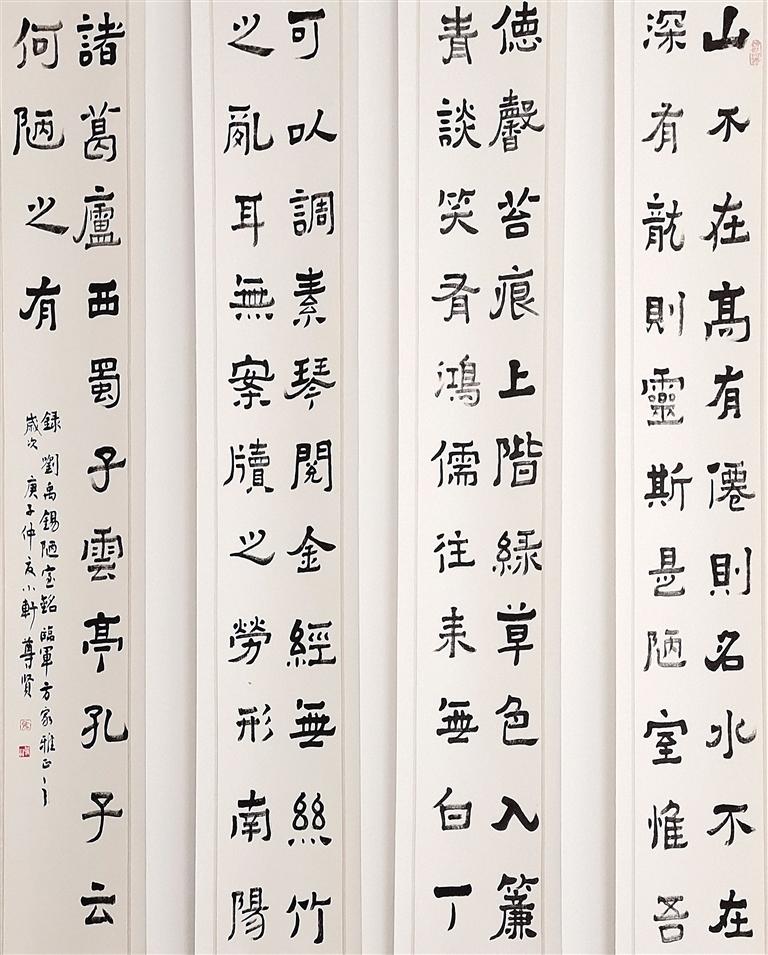 山不在髙有僊則名水不在
深有龍則靈斯是陋室惟吾
德馨苔痕上階緑草色入簾
青談笑有鴻儒往来無白丁
可以調素琴閱金經無絲竹
之亂耳無案牘之勞形南陽
諸葛廬西蜀子雲亭孔子云
何陋之有
録劉禹錫陋室銘臨軍方家雅正之
歲次庚子仲夏小軒尊賢